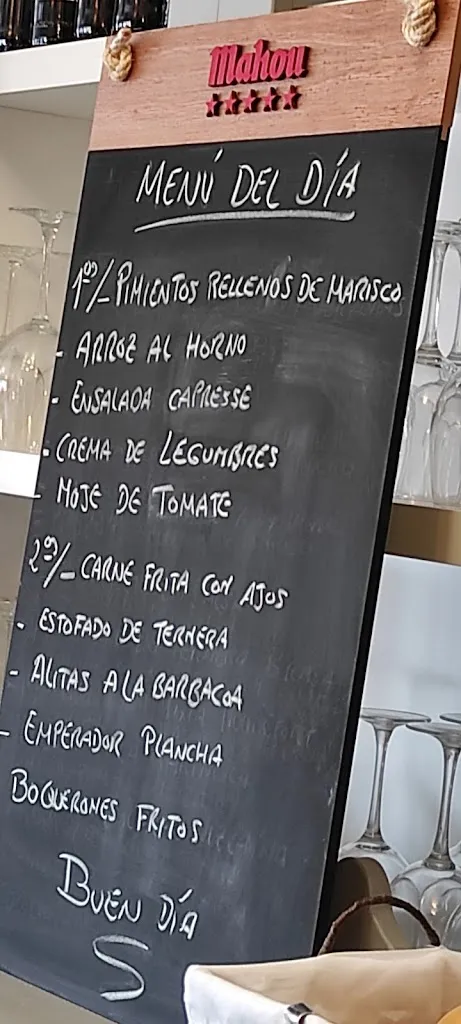 Mahou
MENÚ DEL DÍA
1º/- PIMIENTOS RELLENOS DE MARISCO
- ARROZ AL HORNO
- ENSALADA CAPRESSE
- CREMA DE LEGUMBRES
- MOJE DE TOMATE
2º/- CARNE FRITA CON AJOS
- ESTOFADO DE TERNERA
- ALITAS A LA BARBACOA
- EMPERADOR PLANCHA
BOQUERONES FRITOS
BUEN DÍA
S